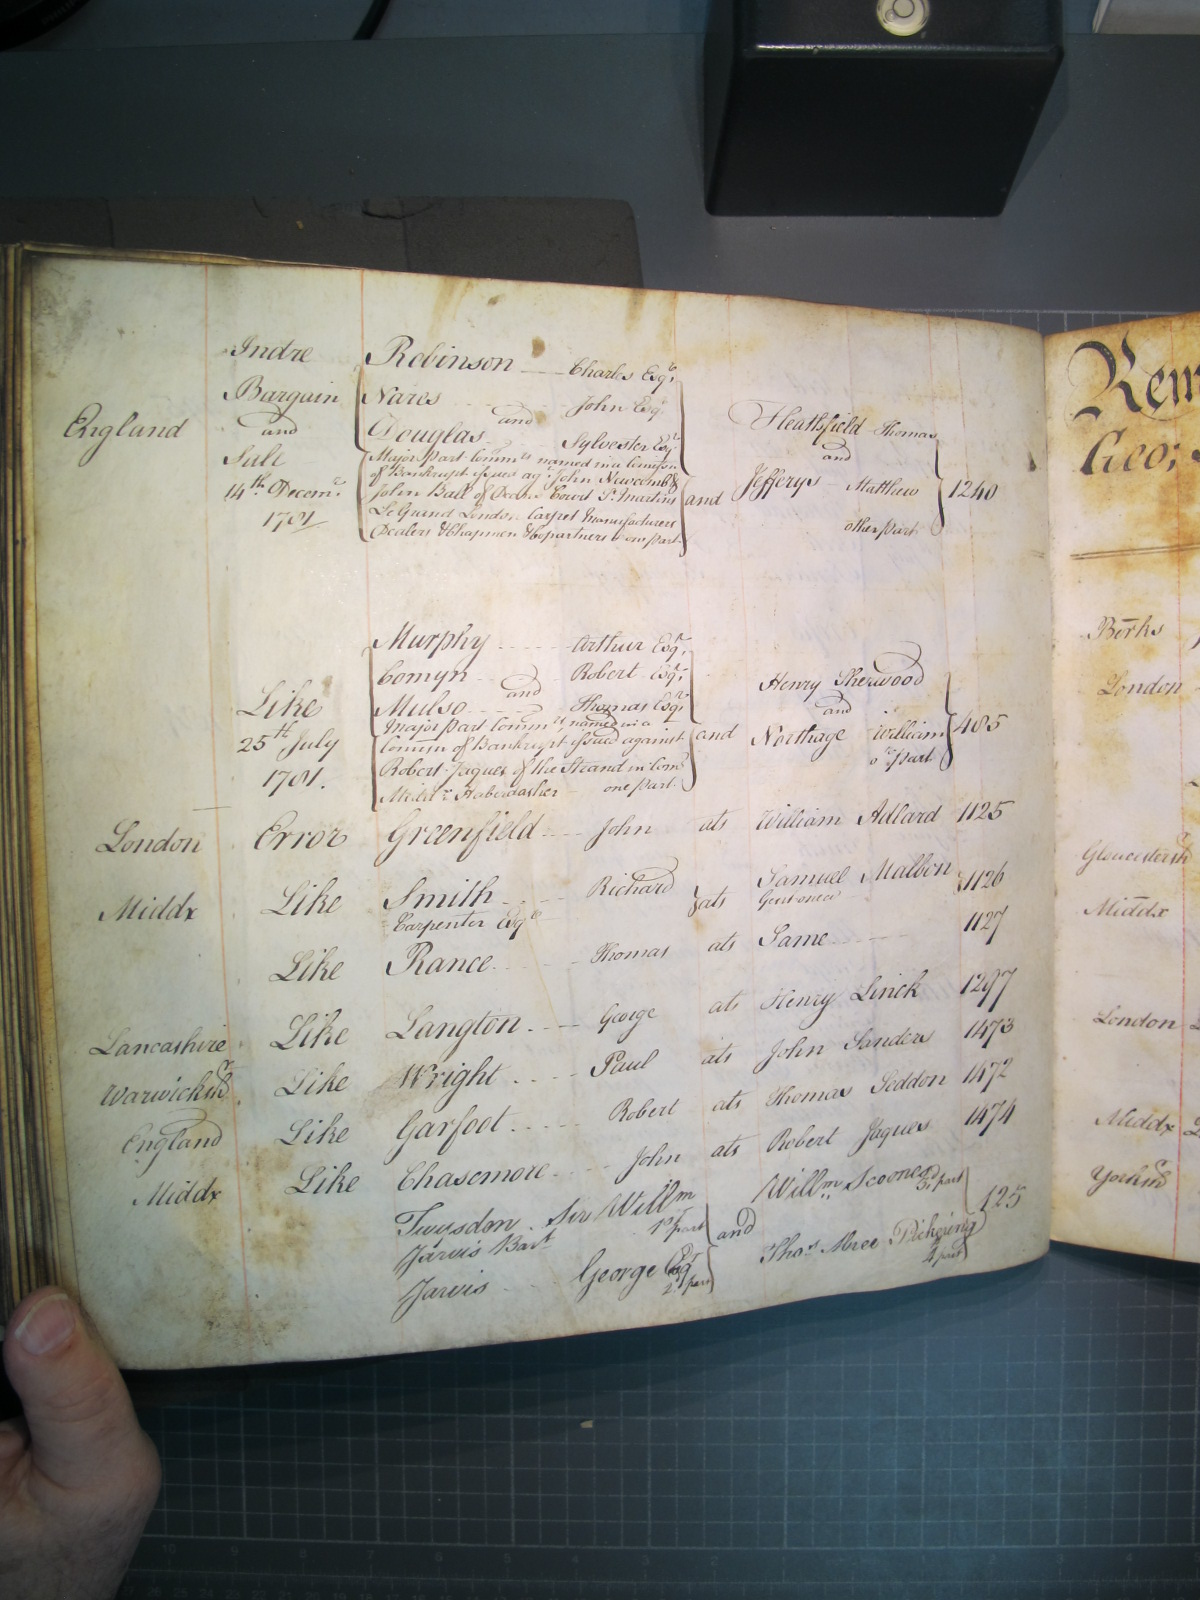 Indre Robinson Charles Esqr.
Bargain Nares and John Esqr.
England and Douglas Sylvester Esqr. Heathfield Thomas
Sale Major part Commrs named in a Comison and
of Bankrupt issues ag. John Newcomb &
14th. Decemr. John Ball of Deans Court St. Martins and Jefferys Matthew 1240
1781 Le Grand London Carpet Manufacturers other part
Dealers & Chapmen & Copartners one part
Murphy Arthur Esqr.
Comyn and Robert Esqr. Henry Sherwood
Like Mulso Thomas Esqr. and
25th July Major part Commrs named in a
Comison of Bankrupt issued against and Northage William 485
1781. Robert Jaques of the Strand in Com
Middx Haberdasher one part or part
London Error Greenfield John ats William Adlard 1125
Middx Like Smith Richard ats Samuel Malbon 1126
Carpenter Esqr
Like Rance Thomas ats Same 1127
Lancashire Like Langton George ats Henry Lirick 1297
Warwicksh Like Wright Paul ats John Sanders 1473
England Like Garfoot Robert ats Thomas Seddon 1472
Middx Like Chasemore John ats Robert Jaques 1474
Twysdon Sir Willm Willm Scoones 3d part
Jarvis Bart 1st part and 125
Jarvis George Esqr 2d part Thos. Mree Pickering 4 part
Rem
Geo:
Berks
London
Gloucestersh
Middx
London
Middx
Yorksh